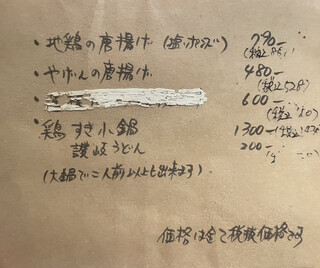 ・地鶏の唐揚げ（塩orポン酢） 790-
・やげんの唐揚げ 480-
(税込528)
・ 600-
鶏すき小鍋 1300-
讃岐うどん 200-
（大鍋で二人前以上も出来ます）
価格は全て税抜価格です